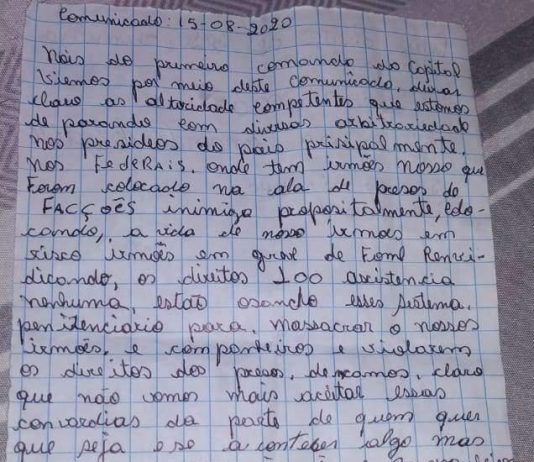 Comunicado: 15-08-2020
Nois do primeiro comando do Capital
Viemos por meio deste Comunicado, deixar
claro as altoridade competentes que estamos
de parando com diversas arbitrariedade
nos presideos do país prisipalmente.
nos FedeRAis. onde tem irmões nosso que
Foram colocado na ala de presos de
FACÇOẼS inimiga propositalmente, colo-
cando, a vida de nosso irmoes em
risco irmões em greve de Fome Renvi-
dicando, os direitos 100 assistencia
nenhuma, estão osando esses sistema.
penitenciario para. massacrar o nossos
irmões. e companheiros e violarem
os direitos dos presos, deixamos, claro
que não vamos mais aceitar essas
convardias da parte de quem quer
que seja e se acontecer algo mas